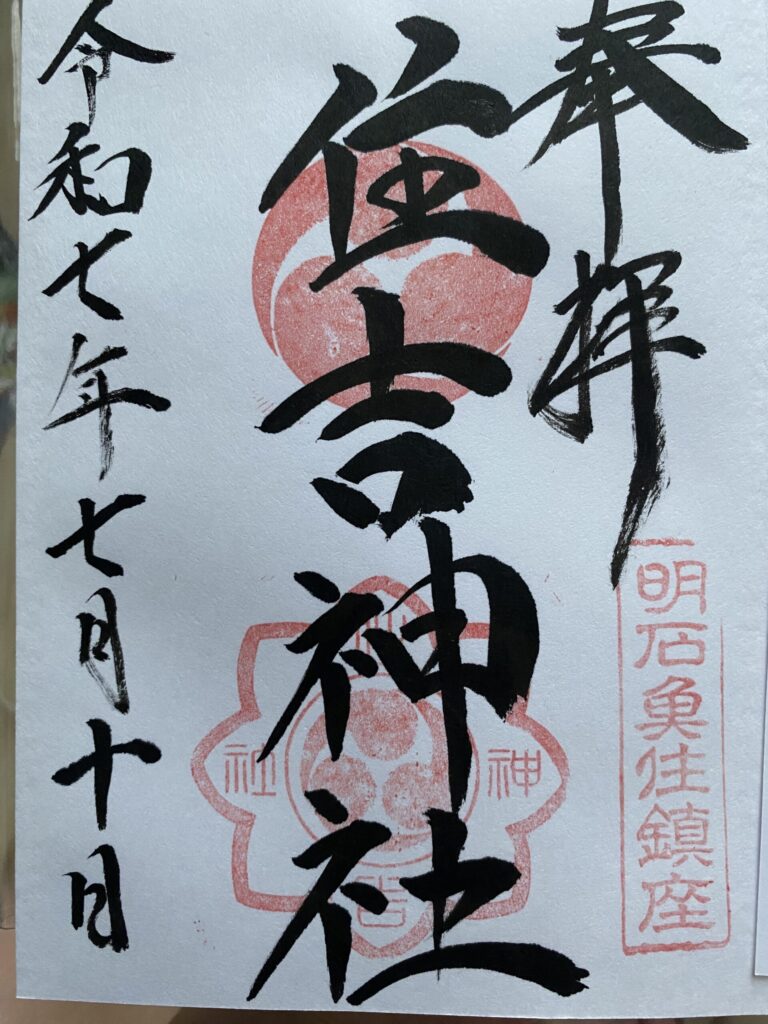 奉拝
明石魚住鎮座
住吉神社
住吉神社
令和七年七月十日